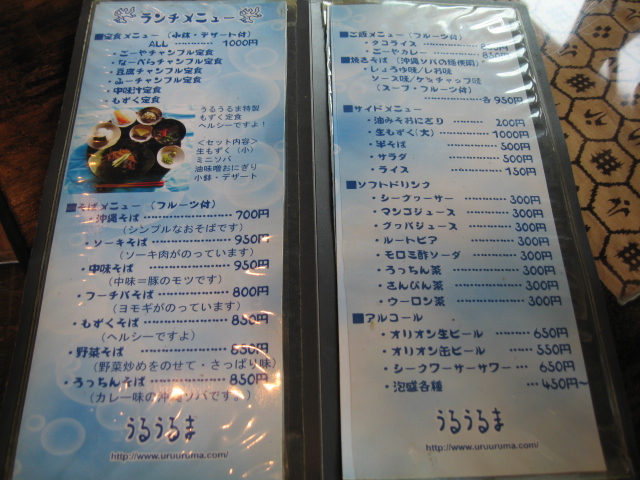 ランチメニュー
■定食メニュー（小鉢・デザート付）
ALL ............ 1000円
・ごーやチャンプル定食
・なーべらチャンプル定食
・豆腐チャンプル定食
・ふーチャンプル定食
・中味汁定食
・もずく定食
うるうるま特製
もずく定食
ヘルシーですよ！
＜セット内容＞
生もずく（小）
ミニソバ
油味噌おにぎり
小鉢・デザート
■そばメニュー（フルーツ付）
・沖縄そば ............ 700円
（シンプルなおそばです）
・ソーキそば ............ 950円
（ソーキ肉がのっています）
・中味そば ............ 950円
（中味＝豚のモツです）
・フーチバそば ............ 800円
（ヨモギがのっています）
・もずくそば ............ 850円
（ヘルシーですよ）
・野菜そば ............ 850円
（野菜炒めをのせて・さっぱり味）
・うっちんそば ............ 850円
（カレー味の沖縄ソバですよ）
うるうるま
http://www.uruuruma.com/
■ご飯メニュー（フルーツ付）
・タコライス ............ 850円
・ごーやカレー ............ 850円
■焼きそば（沖縄ソバの麺使用）
・しょうゆ味/しお味
ソース味/ケチャップ味
（スープ・フルーツ付）
............ 各950円
■サイドメニュー
・油みそおにぎり ............ 200円
・生もずく（大） ............ 1000円
・半そば ............ 500円
・サラダ ............ 500円
・ライス ............ 150円
■ソフトドリンク
・シークヮーサー ............ 300円
・マンゴジュース ............ 300円
・グァバジュース ............ 300円
・ルートビア ............ 300円
・モロミ酢ソーダ ............ 300円
・うっちん茶 ............ 300円
・さんぴん茶 ............ 300円
・ウーロン茶 ............ 300円
■アルコール
・オリオン生ビール ............ 650円
・オリオン缶ビール ............ 550円
・シークワーサーサワー ... 650円
・泡盛各種 ............ 450円～
うるうるま
http://www.uruuruma.com/